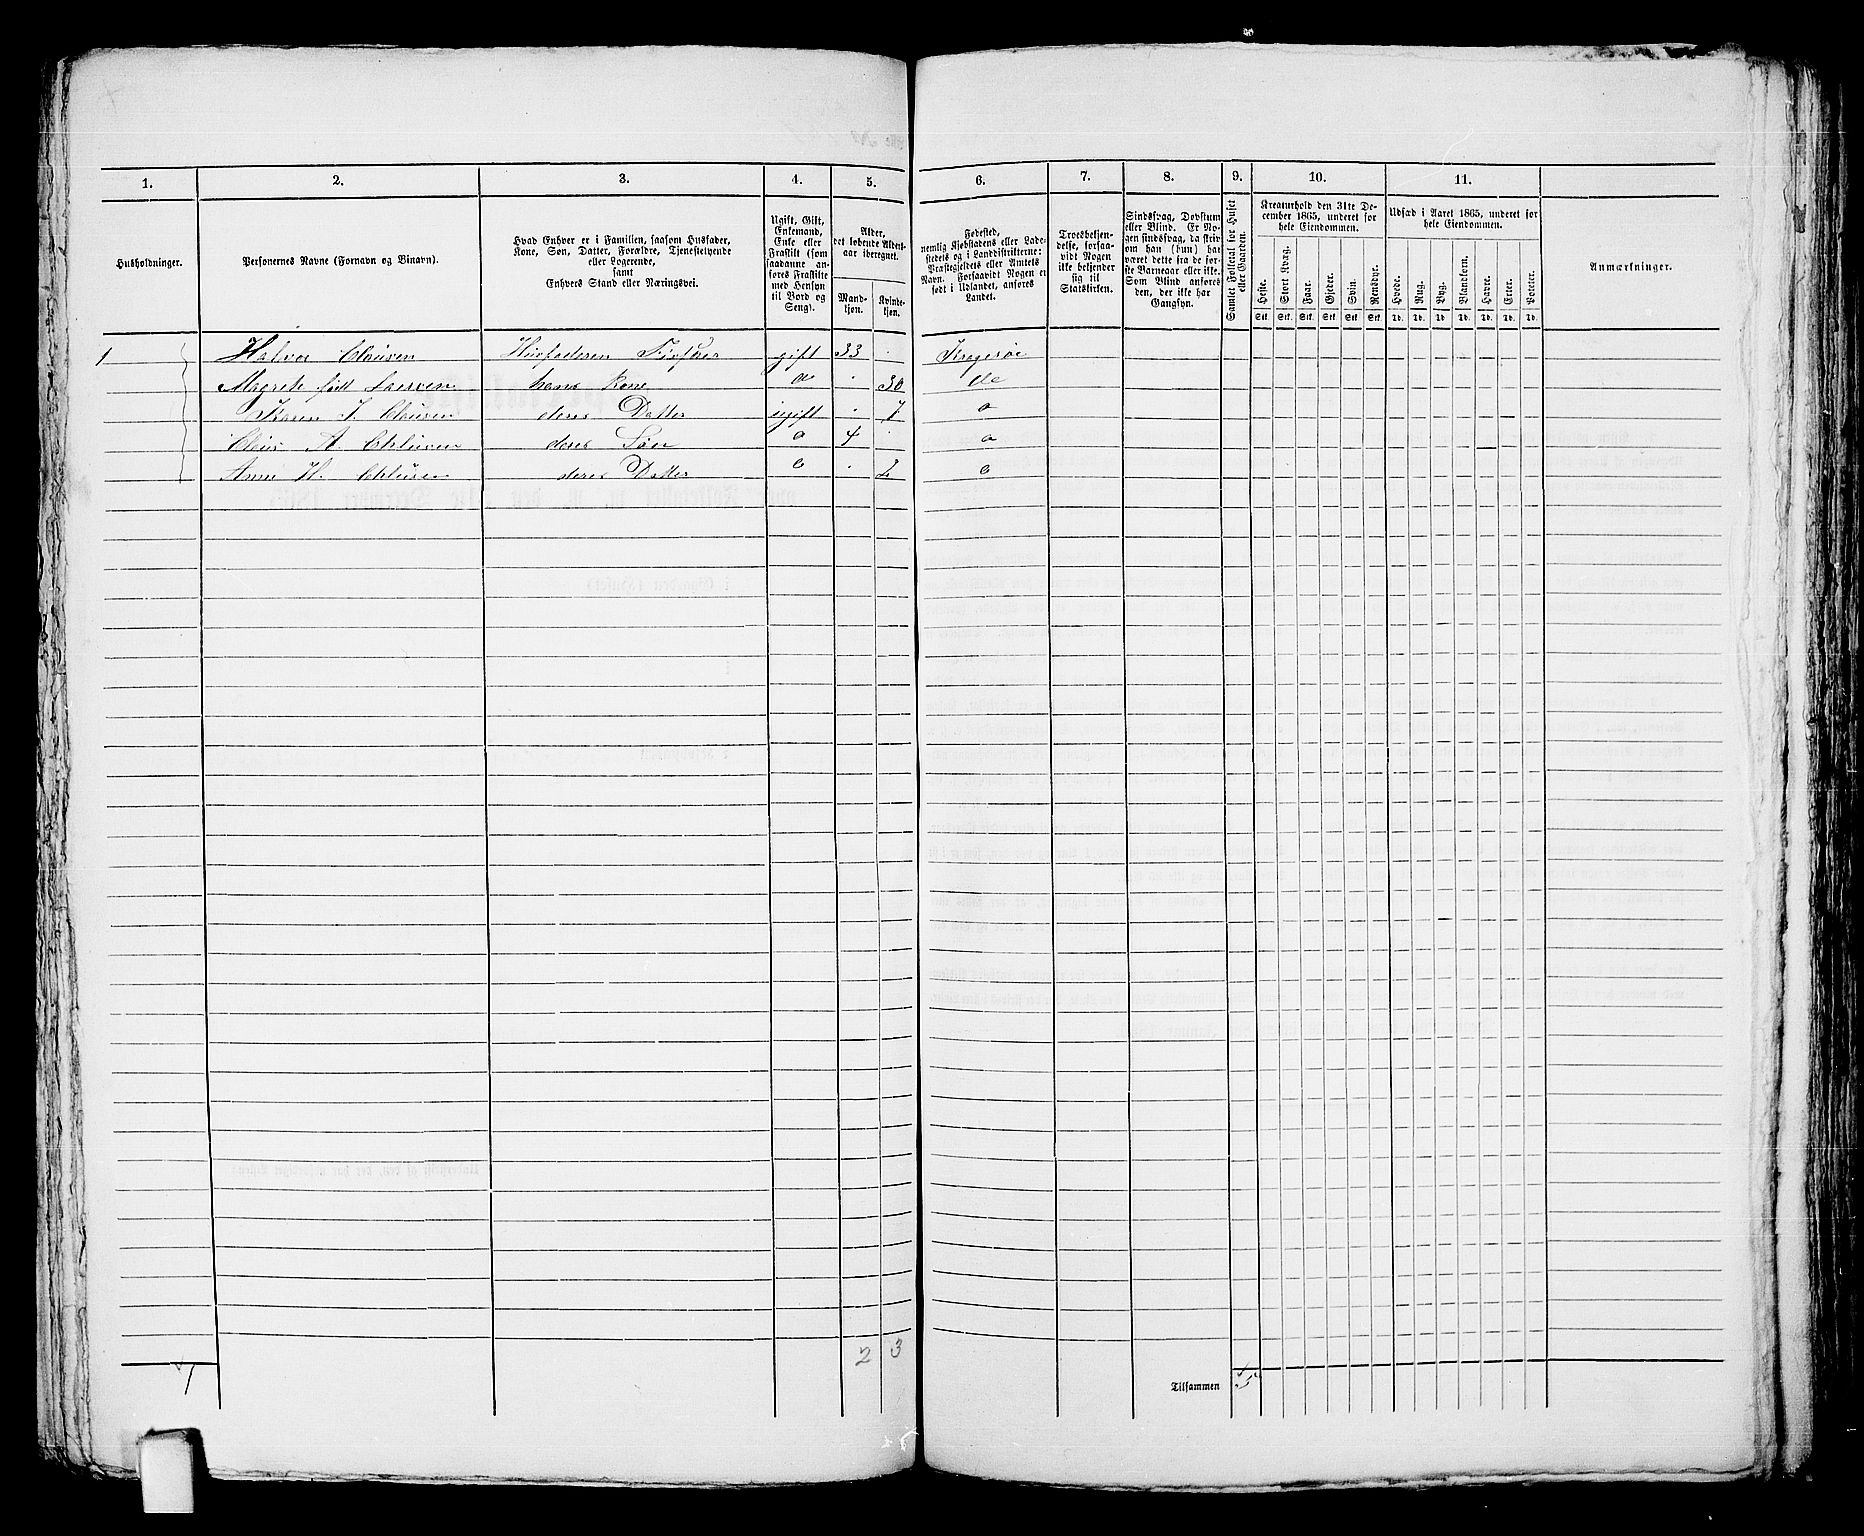 1. 2. 3. 4. 5. 6. 7. 8. 9. 10. 11.
Husholdninger.
Personernes Navne (Fornavn og Binavn).
Hvad Enhver er i Familien, saasom Husfader,
Kone, Søn, Datter, Forældre, Tjenestetyende
eller Logerende,
samt
Enhvers Stand eller Næringsvei.
Ugift, Gift,
Enkemand,
Enke eller
Fraskilt (som
saadanne an-
føres Fraskilte
med Hensyn
til Bord og
Seng).
Alder,
det løbende Alders-
aar iberegnet.
Mand-
kjøn.
Kvinde-
kjøn.
Fødested,
nemlig Kjøbstadens eller Lade-
stedets og i Landdistrikterne:
Præstegjeldets eller Amtets
Navn. Forsaavidt Nogen er
født i Udlandet, anføres
Landet.
Troesbekjen-
delse, forsaa-
vidt Nogen
ikke bekjender
sig til
Statskirken.
Sindssvag, Døvstum
eller Blind. Er No-
gen sindssvag, da skriv
om han (hun) har
været dette fra de før-
ste Barneaar eller ikke.
Som Blind anføres
den, der ikke har
Gangsyn.
Samlet Folketal for Huset
eller Gaarden.
Kreaturhold den 31te De-
cember 1865, underet for
hele Eiendommen.
Heste. Stort Kvæg. Faar. Gjeder. Svin. Rensdyr.
Stk. Stk. Stk. Stk. Stk. Stk.
Udsæd i Aaret 1865, underet for
hele Eiendommen.
Hvede. Rug. Byg. Blandkorn. Havre. Erter. Poteter.
Td. Td. Td. Td. Td. Td. Td.
Anmærkninger.
1 Halvor Clausen Husfaderen gift 33 Kragerøe
Magrete født Larsen hans Kone 30 do
Karen J. Clausen deres Datter ugift 7
A. deres Søn 4
Anne H. deres Datter 2
2 3
1 Tilsammen 5